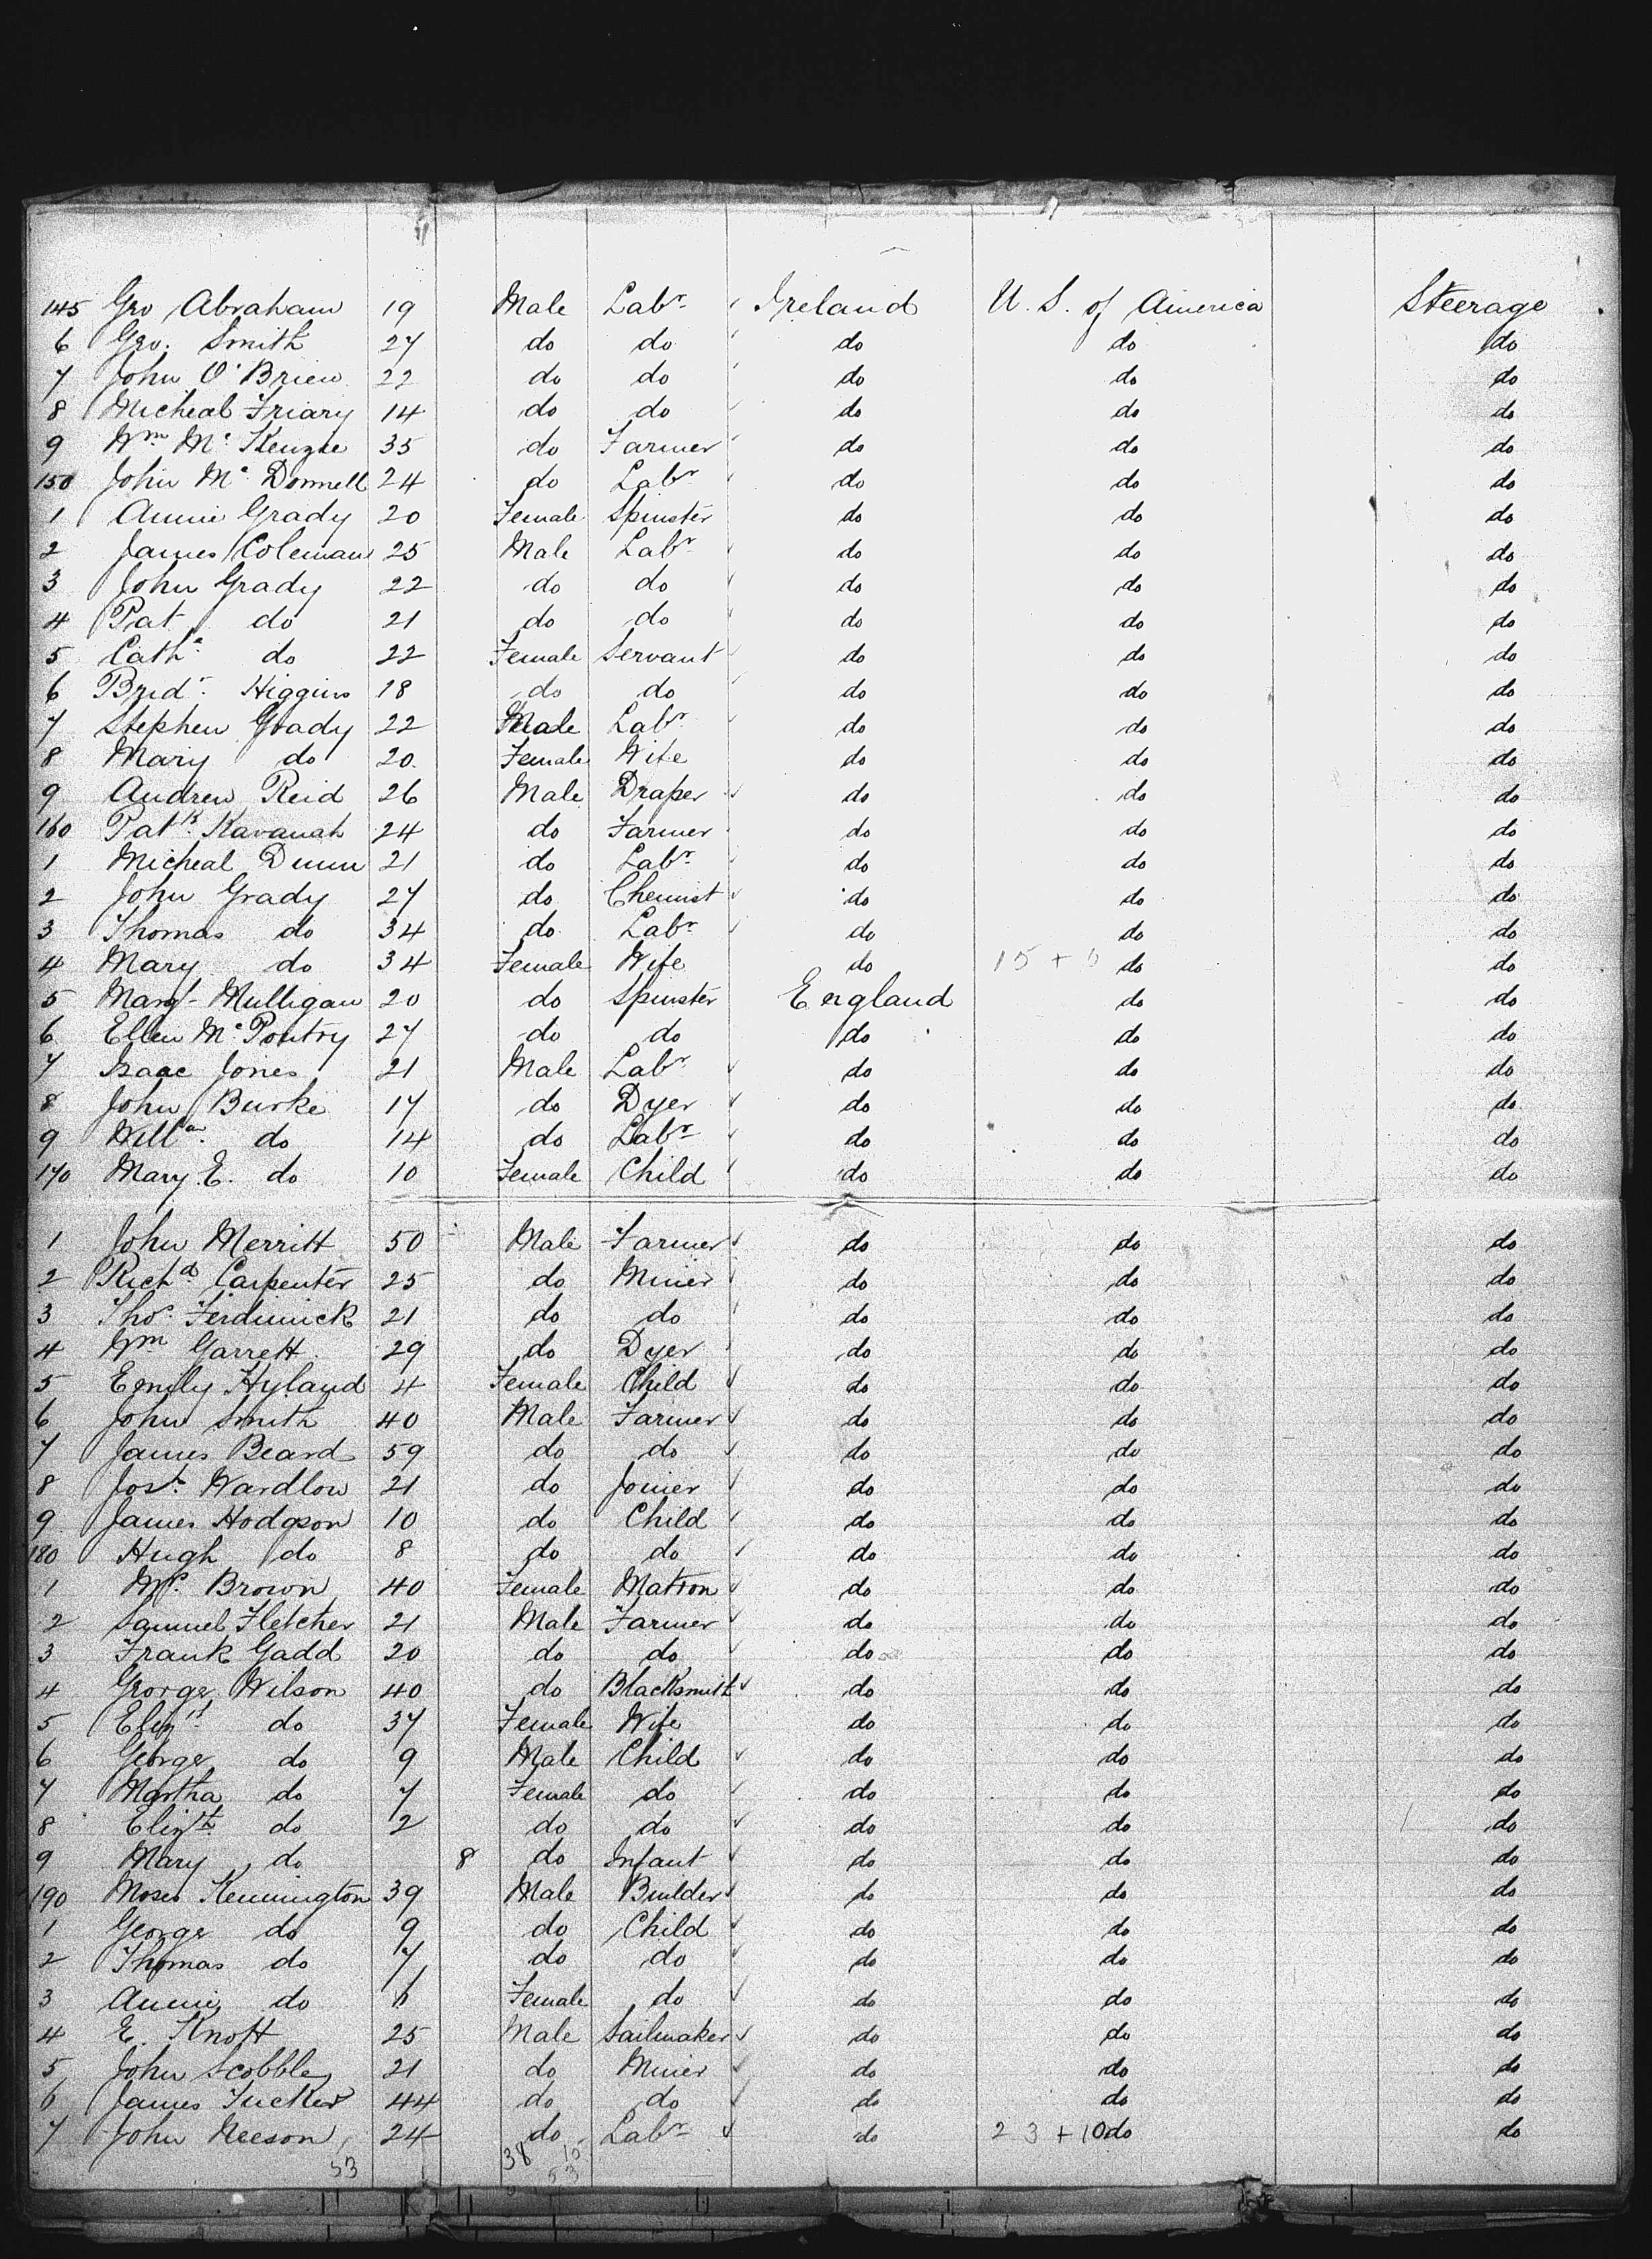 145 Geo Abraham 19 Male Labr Ireland U. S. of America Steerage
6 Geo. Smith 27 do do do do do
7 John O'Brien 22 do do do do do
8 Micheal Friary 14 do do do do do
9 Wm Mc Kenzie 35 do Farmer do do do
150 John Mc Donnell 24 do Labr do do do
1 Annie Grady 20 Female Spinster do do do
2 James Coleman 25 Male Labr do do do
3 John Grady 22 do do do do do
4 Pat do 21 do do do do do
5 Cathe do 22 Female Servant do do do
6 Bridt Higgins 18 do do do do do
7 Stephen Grady 22 Male Labr do do do
8 Mary do 20 Female Wife do do do
9 Andrew Reid 26 Male Draper do do do
160 Patk Kavanah 24 do Farmer do do do
1 Micheal Dunn 21 do Labr do do do
2 John Grady 27 do Chemist do do do
3 Thomas do 34 do Labr do do do
4 Mary do 34 Female Wife do 15 + do do
5 Margt Mulligan 20 do Spinster England do do
6 Ellen Mc 27 do do do do do
7 Isaac Jones 21 Male Labr do do do
8 John Burke 17 do Dyer do do do
9 Willm do 14 do Labr do do do
170 Mary E. do 10 Female Child do do do
1 John Merritt 50 Male Farmer do do do
2 Richd Carpenter 25 do Miner do do do
3 Thos Ferdinick 21 do do do do do
4 Wm Garrett 29 do Dyer do do do
5 Emily Hyland 4 Female Child do do do
6 John Smith 40 Male Farmer do do do
7 James Beard 59 do do do do do
8 Josh Wardlow 21 do Joiner do do do
9 James Hodgson 10 do Child do do do
180 Hugh do 8 do do do do do
1 Mrs Brown 40 Female Matron do do do
2 Samuel Fletcher 21 Male Farmer do do do
3 Frank Gadd 20 do do do do do
4 George Wilson 40 do Blacksmith do do do
5 Elizth do 37 Female Wife do do do
6 George do 9 Male Child do do do
7 Martha do 7 Female do do do do
8 Elizth do 2 do do do do do
9 Mary do 8 do Infant do do do
190 Moses Kennington 39 Male Builder do do do
1 George do 9 do Child do do do
2 Thomas do 7 do do do do do
3 Annie do Female do do do do
4 E. Knott 25 Male Sailmaker do do do
5 John Scobble 21 do Miner do do do
6 James Tucker 44 do do do do do
7 John Neeson 24 do Labr do 23 + 10 do do
53 38 15
53